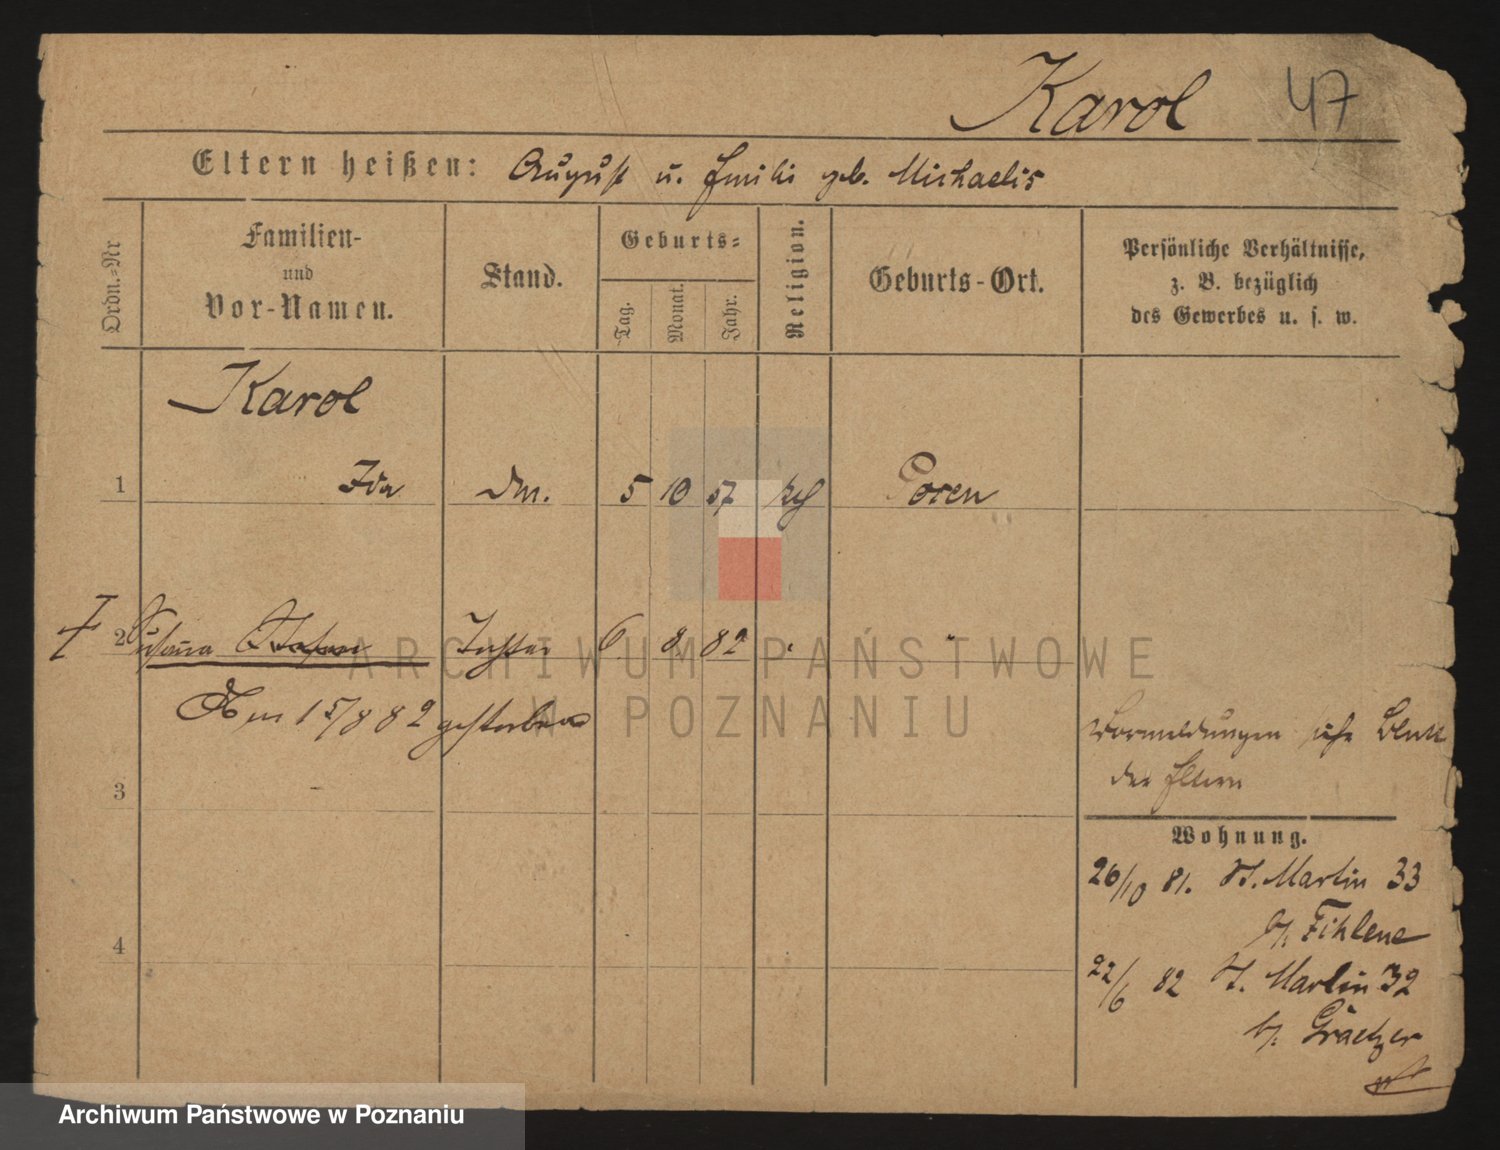 Karol 47
Eltern heißen: August u. Emilie geb. Michaelis
Ordn.=Nr
Familien-
und
Vor-Namen.
Stand.
Geburts=
Tag.
Monat.
Jahr.
Religion.
Geburts-Ort.
Persönliche Verhältnisse,
z. B. bezüglich
des Gewerbes u. s. w.
Karol
1 Ida 5 10 57 Posen
2 Tochter 6 8 82 "
Am 15/8 82 gestorben
Vormeldungen siehe Blatt
der Eltern
3
Wohnung.
26/10 81. St. Martin 33
b/.
4
22/6 82 St. Martin 32
b/. Graetzer
ARCHIWUM PAŃSTWOWE
W POZNANIU
Archiwum Państwowe w Poznaniu